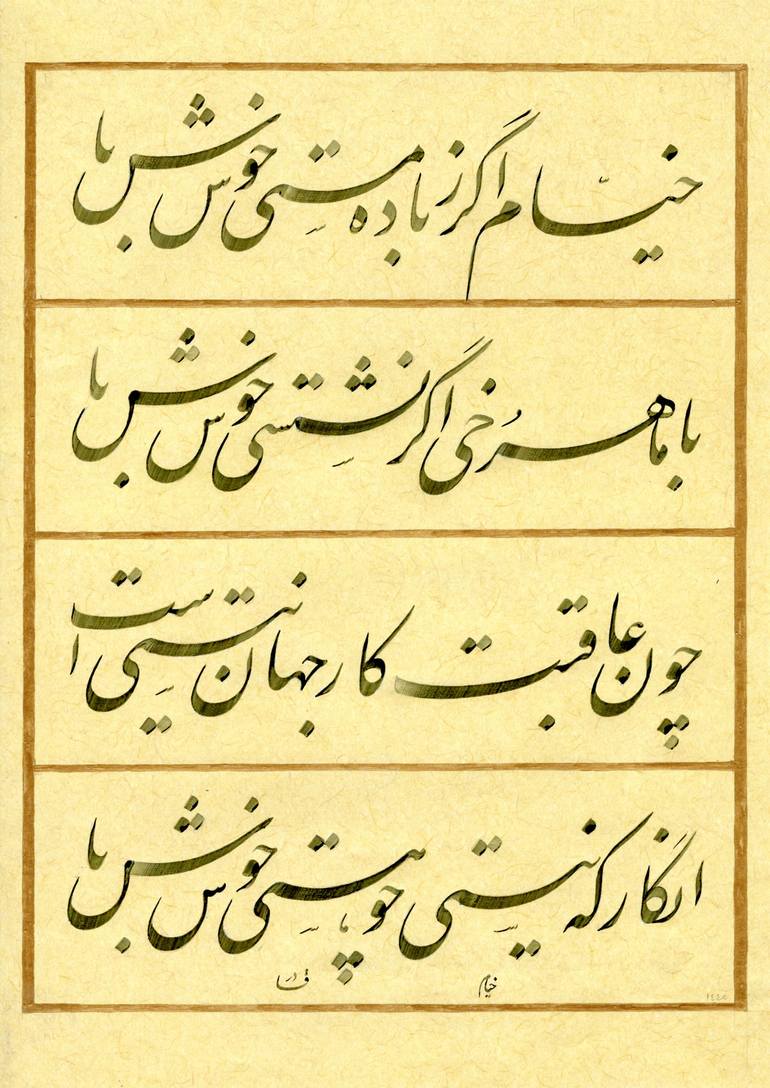 خیّام اگر ز باده مستی خوش باش
با ماهرُخی اگر نشستی خوش باش
چون عاقبت کار جهان نیستی است
انگار که نیستی چو هستی خوش باش
خیام